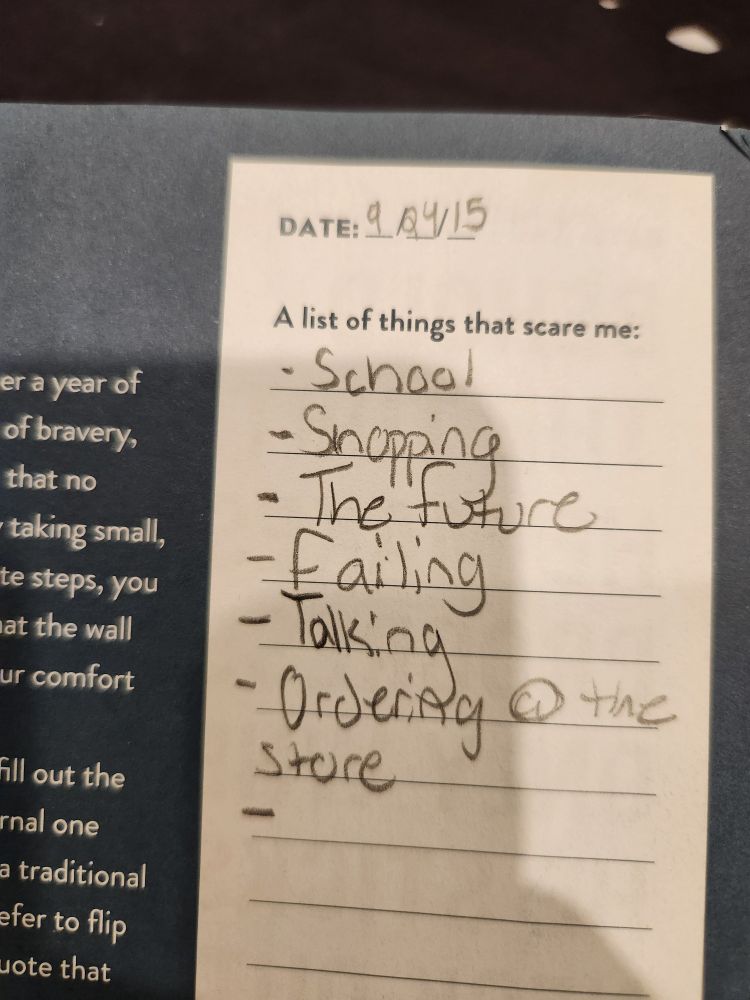 DATE: 9/24/15
A list of things that scare me:
- School
- Shopping
- The future
- Failing
- Talking
- Ordering @ the
store
-
er a year of
of bravery,
that no
taking small,
te steps, you
at the wall
ur comfort
fill out the
rnal one
a traditional
efer to flip
uote that